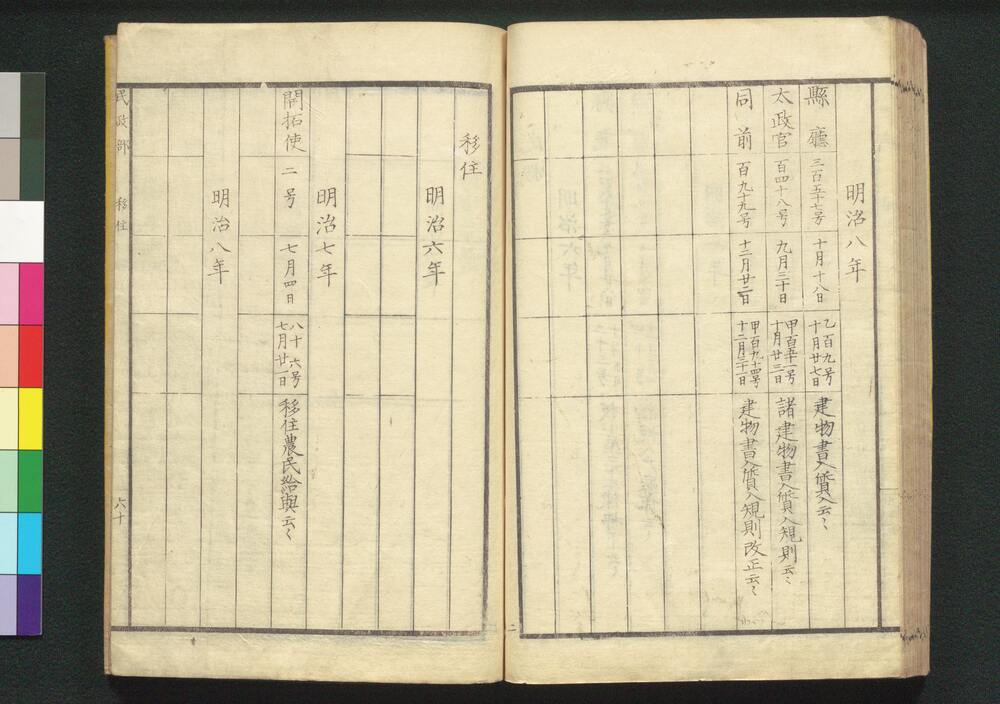 明治八年
縣廳 三百五十七号 十月十八日 乙百九号 十月廿七日 建物書入質入云〻
太政官 百四十八号 九月三十日 甲百五十一号 十月廿三日 諸建物書入質入規則云〻
同前 百九十九号 十二月廿二日 甲百九十四号 十二月三十一日 建物書入質入規則改正云〻
移住
明治六年
明治七年
開拓使 二号 七月四日 八十六号 七月廿一日 移住農民給與云〻
明治八年
民政部 移住 六十